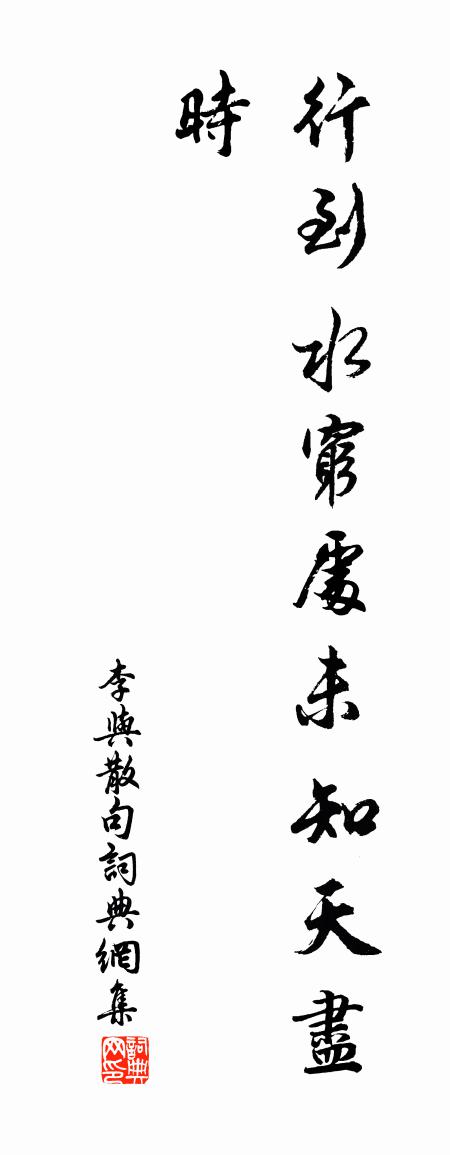 行到水窮處未知天盡
時
李與散句詞典網集
詞典网印